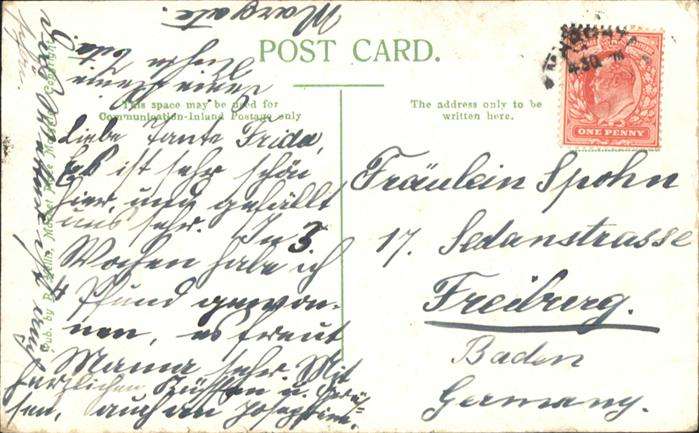 Margate.
POST CARD.
This space may be used for
Communication-Inland Postage only
The address only to be
written here.
ONE PENNY
4.30
Liebe Tante Frida,
Es ist sehr schön
hier und gefällt
uns sehr. In 3
Wochen habe ich
4 Pfund gewon-
nen, es freut
Mama sehr. Mit
herzlichen Küssen u. Grüs-
sen, auch an Josephine.
Fräulein Spohn
17. Sedanstrasse
Freiburg.
Baden
Germany.